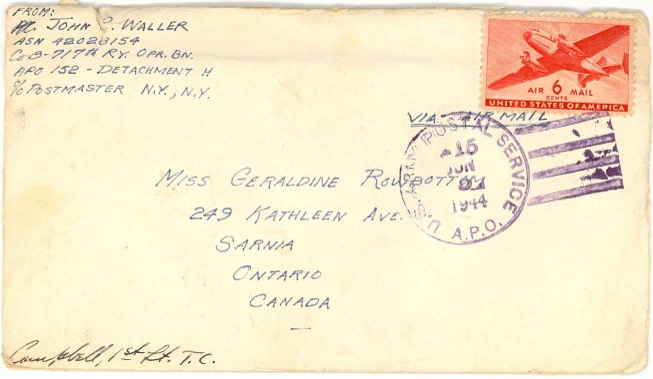 FROM:
JOHN C. WALLER
ASN 42023154
CO B-717th RY. OPR. BN.
APO 152 - DETACHMENT H
c/o POSTMASTER N.Y., N.Y.
AIR 6 MAIL
CENTS
UNITED STATES OF AMERICA
VIA - AIR MAIL
U.S. ARMY POSTAL SERVICE
15
JUN
1944
A.P.O.
MISS GERALDINE ROWBOTTOM
249 KATHLEEN AVE.
SARNIA
ONTARIO
CANADA
Campbell, 1st Lt. T.C.